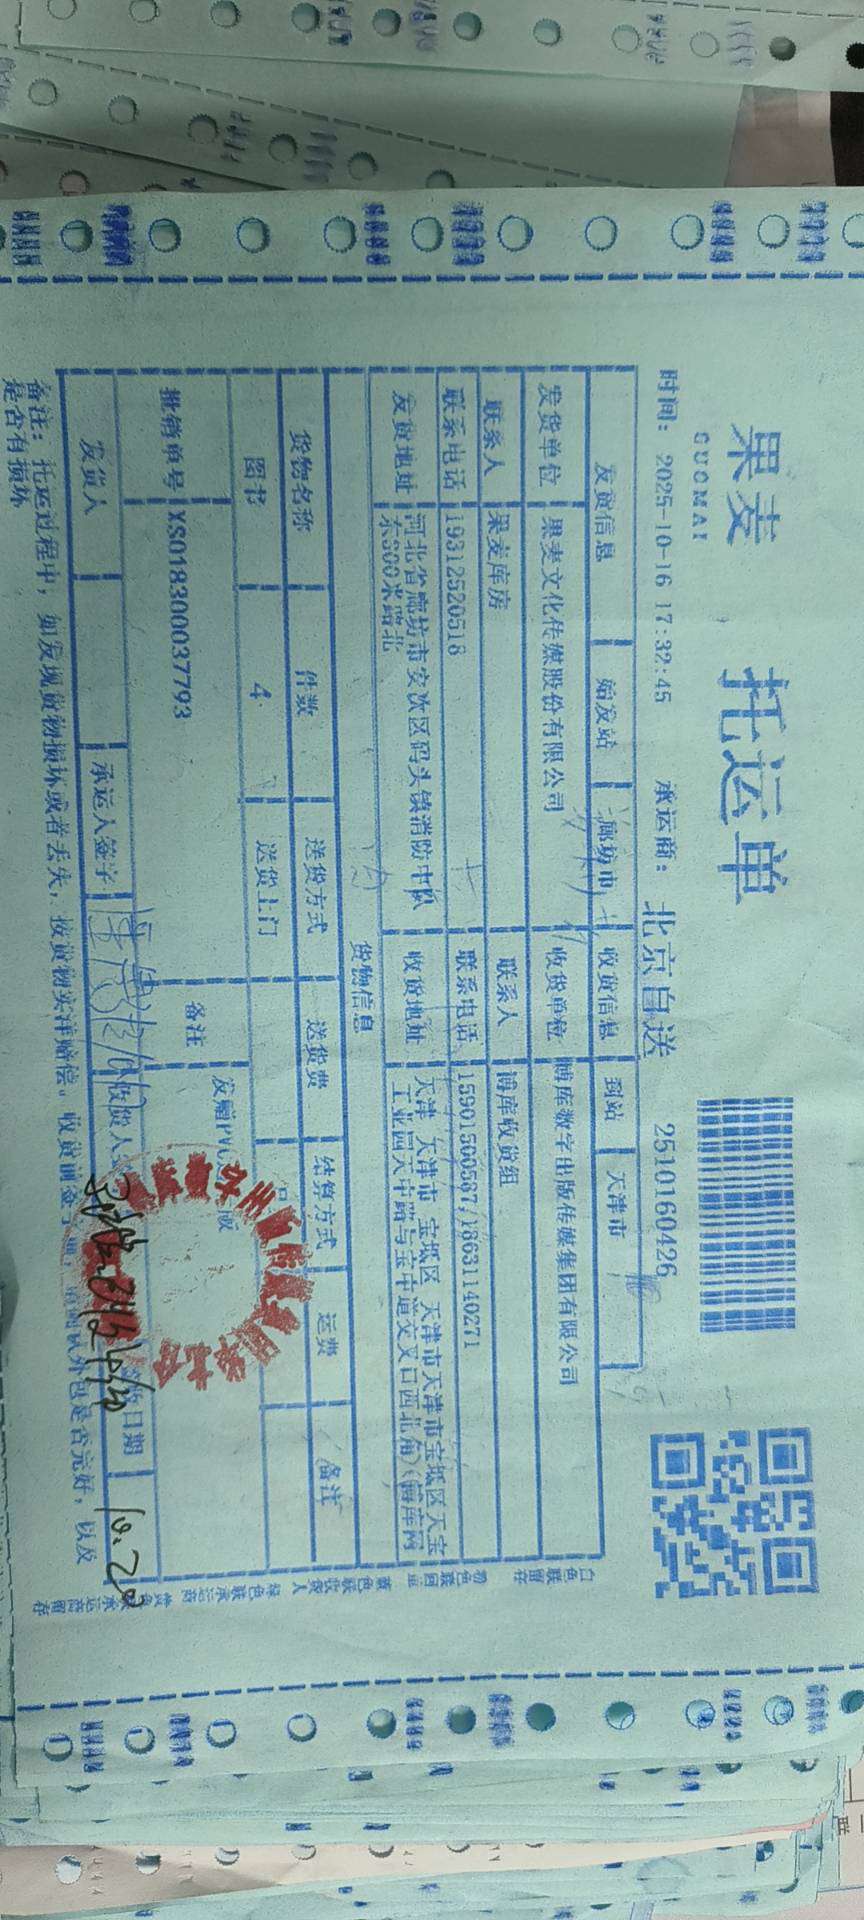 果麦
GUOMAI
托运单
时间: 2025-10-16 17:32:45 承运商: 北京自送 2510160426
发货信息 始发站 廊坊市 收货信息 到站 天津市
发货单位 果麦文化传媒股份有限公司 收货单位 博库数字出版传媒集团有限公司
联系人 果麦库房 联系人 博库收货组
联系电话 19312520518 联系电话 15901500567/18631140271
发货地址 河北省廊坊市安次区码头镇消防中队东800米路北 收货地址 天津 天津市 宝坻区 天津市天津市宝坻区天宝工业园天中路与宝中道交叉口西北角(博库网
货物信息
货物名称 件数 送货方式 送货费 结算方式 运费 备注
图书 4 送货上门
批销单号 XS018300037793 备注 发赠PVC
发货人 承运人签字 收货人 日期 10.20
备注: 托运过程中, 如发现货物损坏或者丢失, 按货物实洋赔偿。收货前 外包是否完好, 以及
是否有损坏
白色联留存 粉色联回 黄色联收货人 绿色联承运商 承运商留存